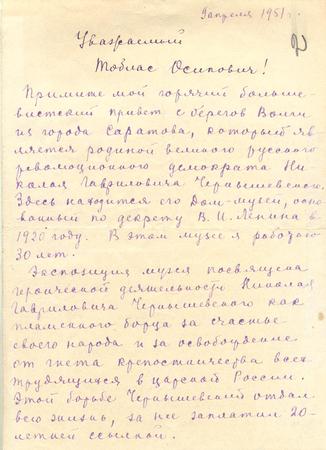 9 апреля 1951 г.
2
Уважаемый
Тоблас Осипович!
Примите мой горячий больше-
вистский привет с берегов Волги
из города Саратова, который яв-
ляется родиной великого русского
революционного демократа Ни-
колая Гавриловича Чернышевского.
Здесь находится его Дом-музей, осно-
ванный по декрету В. И. Ленина в
1920 году. В этом музее я работаю
30 лет.
Экспозиция музея посвящена
героической деятельности Николая
Гавриловича Чернышевского как
пламенного борца за счастье
своего народа и за освобождение
от гнета крепостничества всех
трудящихся в царской России.
Этой борьбе Чернышевский отдал
всю жизнь, за нее заплатил 20-
летней ссылкой.